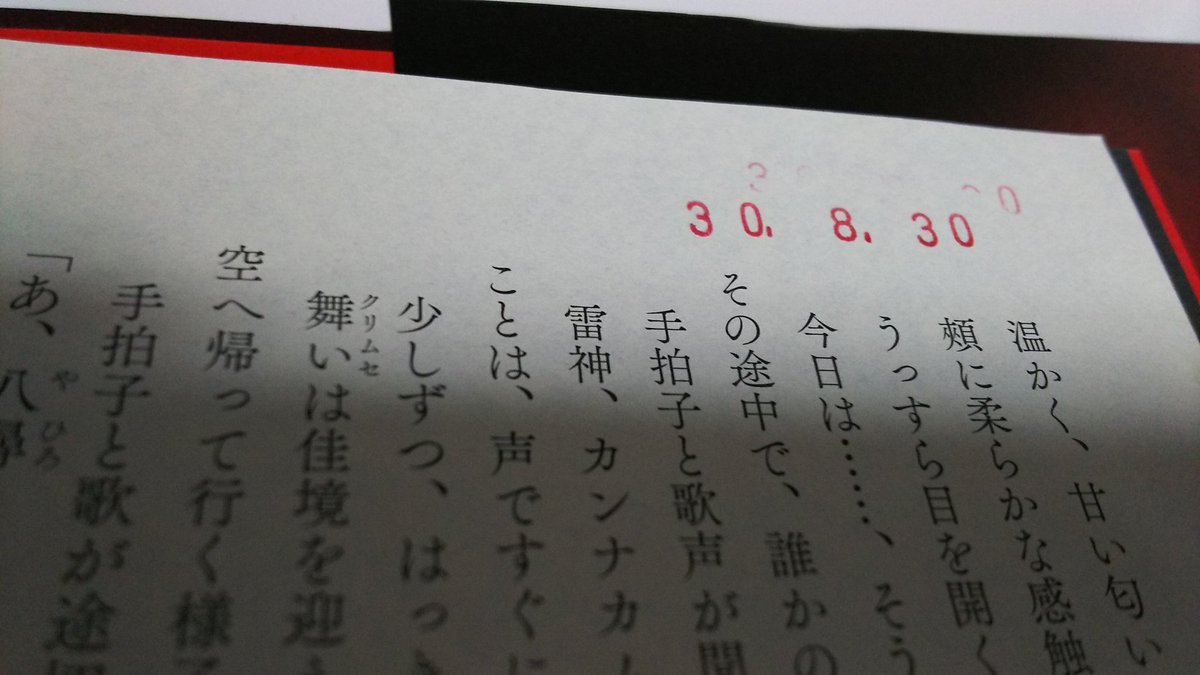 30. 8. 30
温かく、甘い匂い
頰に柔らかな感触
うっすら目を開く
今日は……、そう
その途中で、誰かの
手拍子と歌声が聞
雷神、カンナカム
ことは、声ですぐに
少しずつ、はっき
舞いは佳境を迎え
クリムセ
空へ帰って行く様子
手拍子と歌が途
「あ、八尋
やひろ